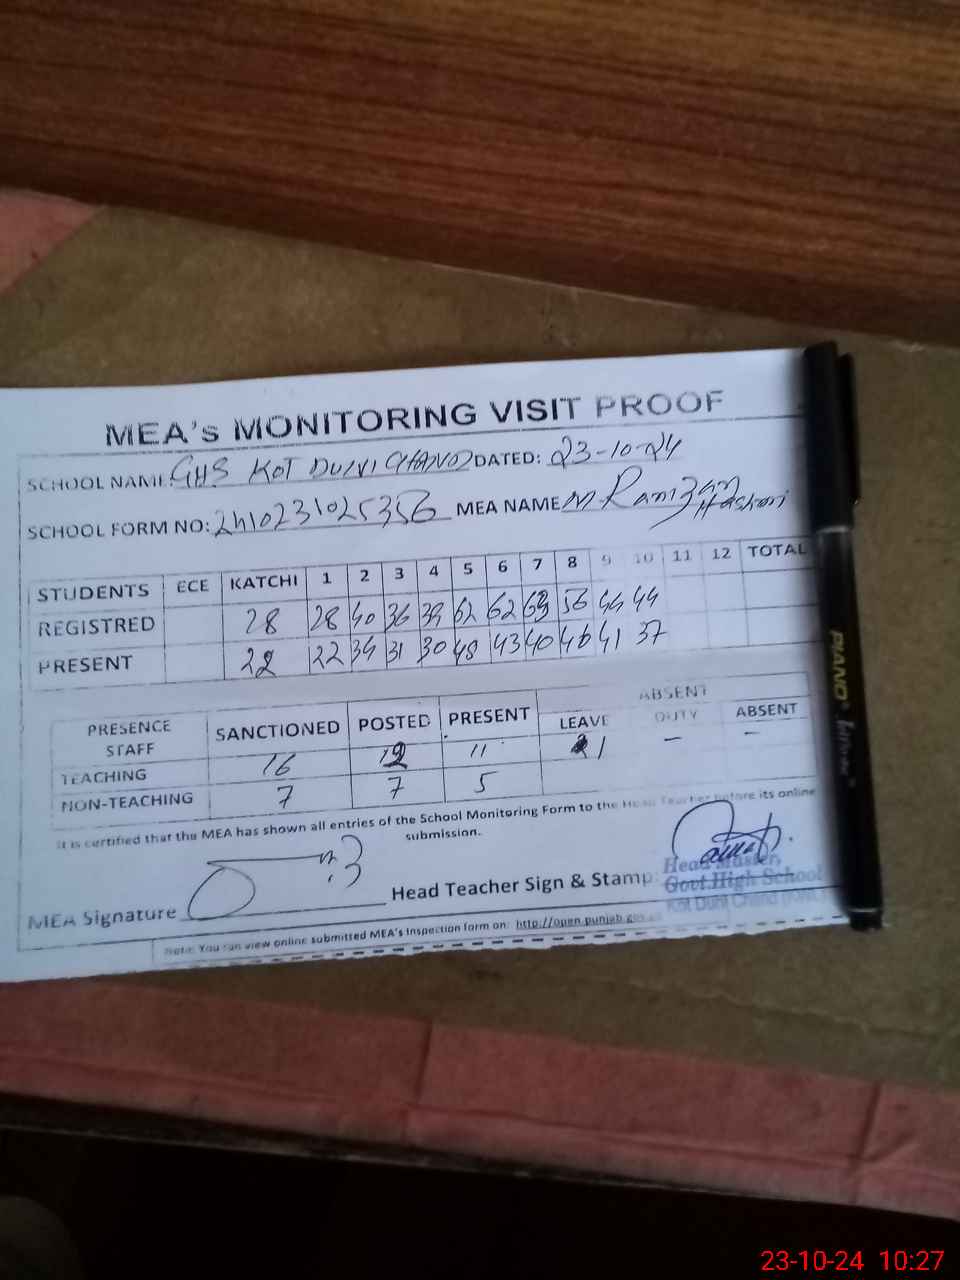 MEA's MONITORING VISIT PROOF
SCHOOL NAME: GHS KOT DULVI CHAND DATED: 23-10-24
SCHOOL FORM NO: MEA NAME M Ramzan Hashmi
STUDENTS ECE KATCHI 1 2 3 4 5 6 7 8 9 10 11 12 TOTAL
REGISTRED 28 28 40 36 39 62 62 63 56 44 44
PRESENT 22 22 34 31 30 48 43 40 46 41 37
ABSENT
PRESENCE STAFF SANCTIONED POSTED PRESENT LEAVE DUTY ABSENT
TEACHING 16 12 11 1 - -
NON-TEACHING 7 7 5
It is certified that the MEA has shown all entries of the School Monitoring Form to the Head Teacher before its online
submission.
MEA Signature Head Teacher Sign & Stamp:
Head Master,
Govt.High School
Note: You can view online submitted MEA's Inspection form on: http://open.punjab.gov.
PIANO
23-10-24 10:27